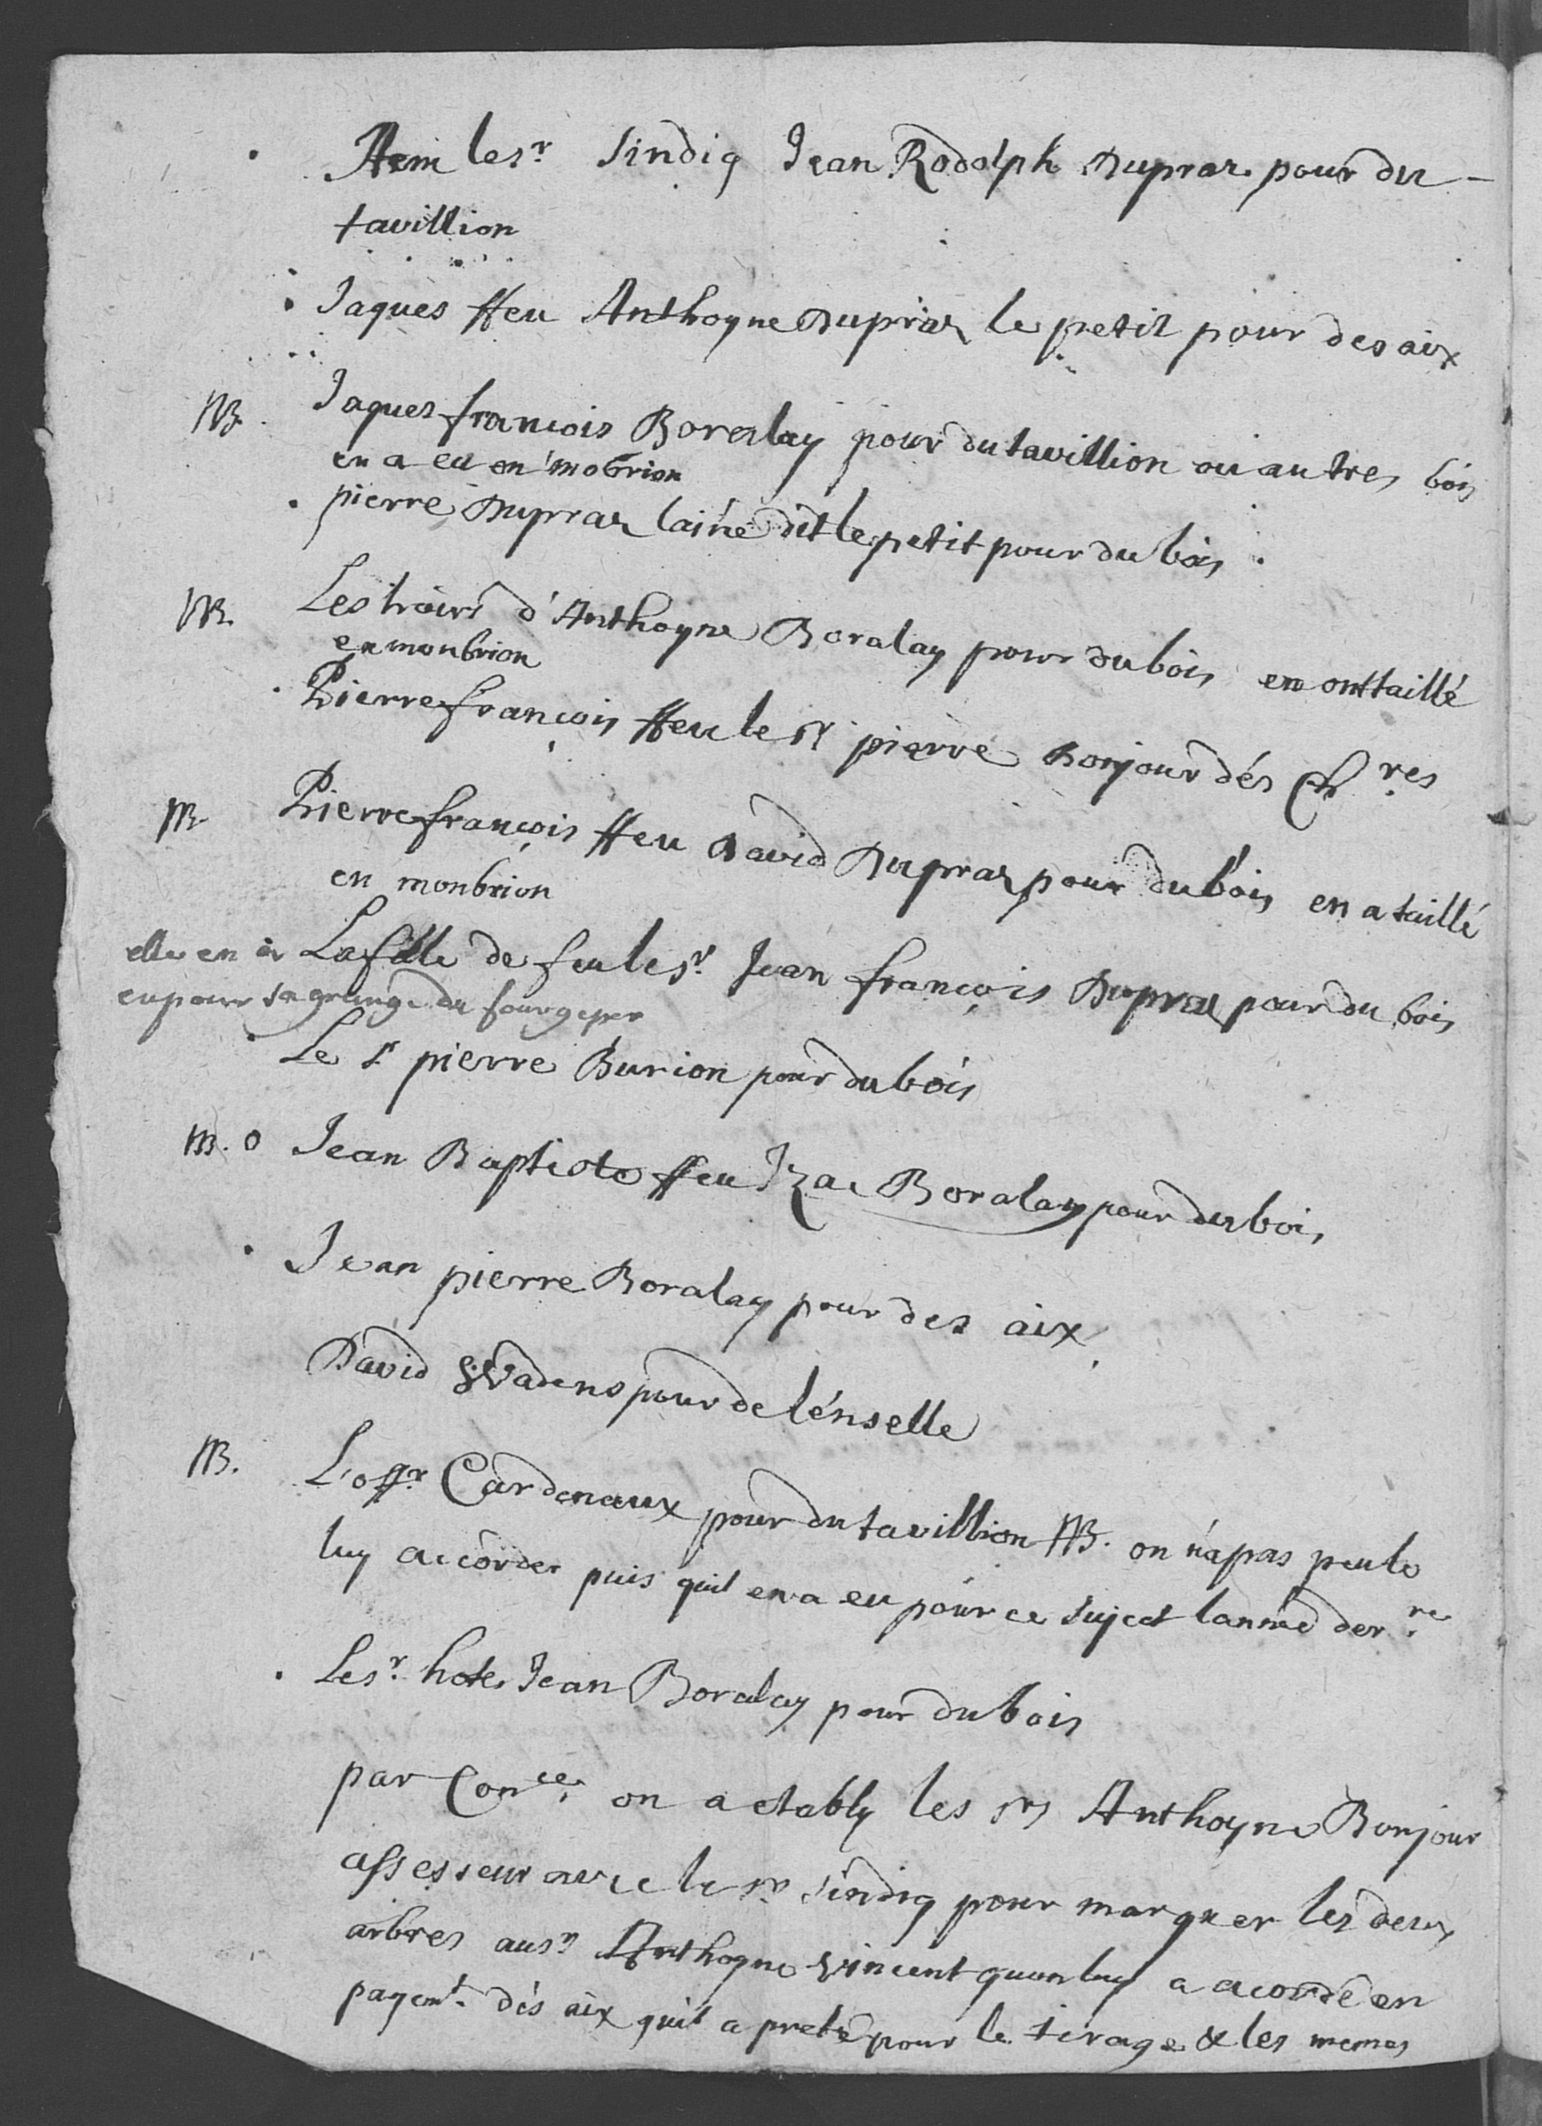 Item le sr Sindiq Jean Rodolph Dupraz pour du
tavillion
Jaques ffeu Anthoyne Dupraz le petit pour des aix
NB. Jaques françois Boralay pour du tavillion ou autres bois
en a eu en mobrion
pierre Dupraz lainé dit le petit pour du bois
NB. Les hoirs d'Anthoyne Boralay pour du bois en ont taillé
en monbrion
Pierre françois ffeu le sr pierre Bonjour dés Chres
NB. Pierre françois ffeu David Dupraz pour du bois en a taillé
en monbrion
La fille de feu le sr Jean françois Dupraz pour du bois
elle en a
eu pour sa grange du
Le sr pierre Burion pour du bois
NB. o Jean Baptiste ffeu Izac Boralay pour du bois
Jean pierre Boralay pour des aix
David Wadens pour de lénselle
NB. L'offr Cardenaux pour du tavillion NB. on n'a pas peu le
luy accorder puis quil en a eu pour ce suject lanneé derre
Le sr hote Jean Boralay pour du bois
par Conce on a etably les srs Anthoyne Bonjour
assesseur avec le sr Sindiq pour marquer les deux
arbres au sr Anthoyne Vincent quon luy a acordé en
payemt dés aix quil a preté pour le tirage & les memes